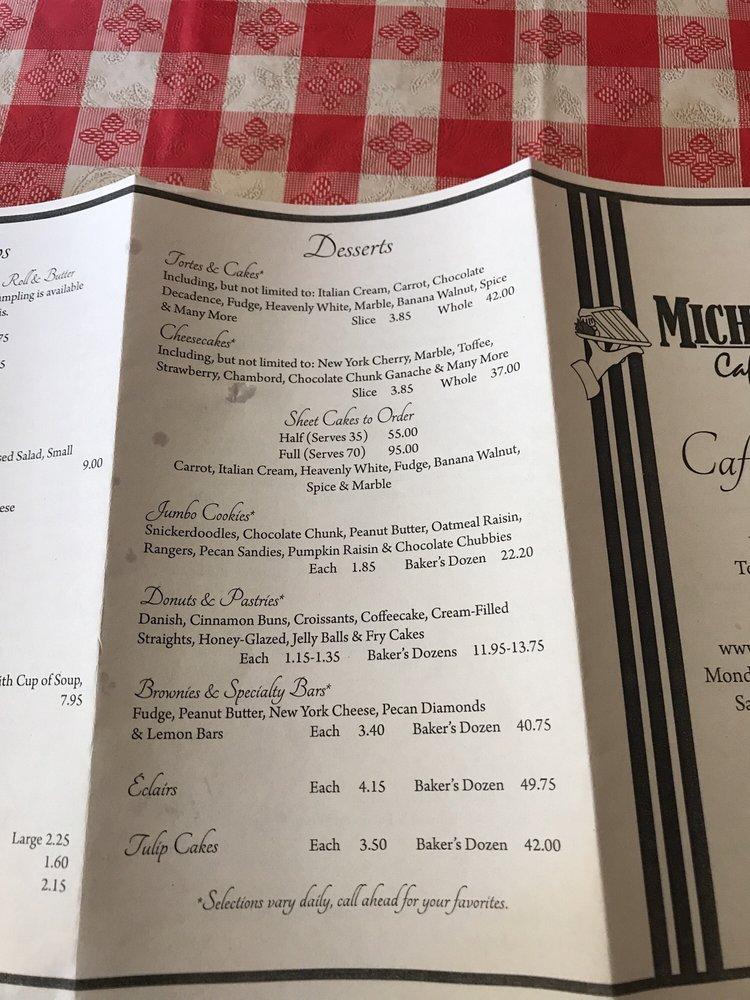 ps
Roll & Butter
mpling is available
is.
75
5
sed Salad, Small
9.00
ese
ith Cup of Soup,
7.95
Large 2.25
1.60
2.15
Desserts
Tortes & Cakes*
Including, but not limited to: Italian Cream, Carrot, Chocolate
Decadence, Fudge, Heavenly White, Marble, Banana Walnut, Spice
& Many More Slice 3.85 Whole 42.00
Cheesecakes*
Including, but not limited to: New York Cherry, Marble, Toffee,
Strawberry, Chambord, Chocolate Chunk Ganache & Many More
Slice 3.85 Whole 37.00
Sheet Cakes to Order
Half (Serves 35) 55.00
Full (Serves 70) 95.00
Carrot, Italian Cream, Heavenly White, Fudge, Banana Walnut,
Spice & Marble
Jumbo Cookies*
Snickerdoodles, Chocolate Chunk, Peanut Butter, Oatmeal Raisin,
Rangers, Pecan Sandies, Pumpkin Raisin & Chocolate Chubbies
Each 1.85 Baker's Dozen 22.20
Donuts & Pastries*
Danish, Cinnamon Buns, Croissants, Coffeecake, Cream-Filled
Straights, Honey-Glazed, Jelly Balls & Fry Cakes
Each 1.15-1.35 Baker's Dozens 11.95-13.75
Brownies & Specialty Bars*
Fudge, Peanut Butter, New York Cheese, Pecan Diamonds
& Lemon Bars Each 3.40 Baker's Dozen 40.75
Eclairs Each 4.15 Baker's Dozen 49.75
Tulip Cakes Each 3.50 Baker's Dozen 42.00
*Selections vary daily, call ahead for your favorites.
MICH
Caf
Caf
To
www
Mond
Sa